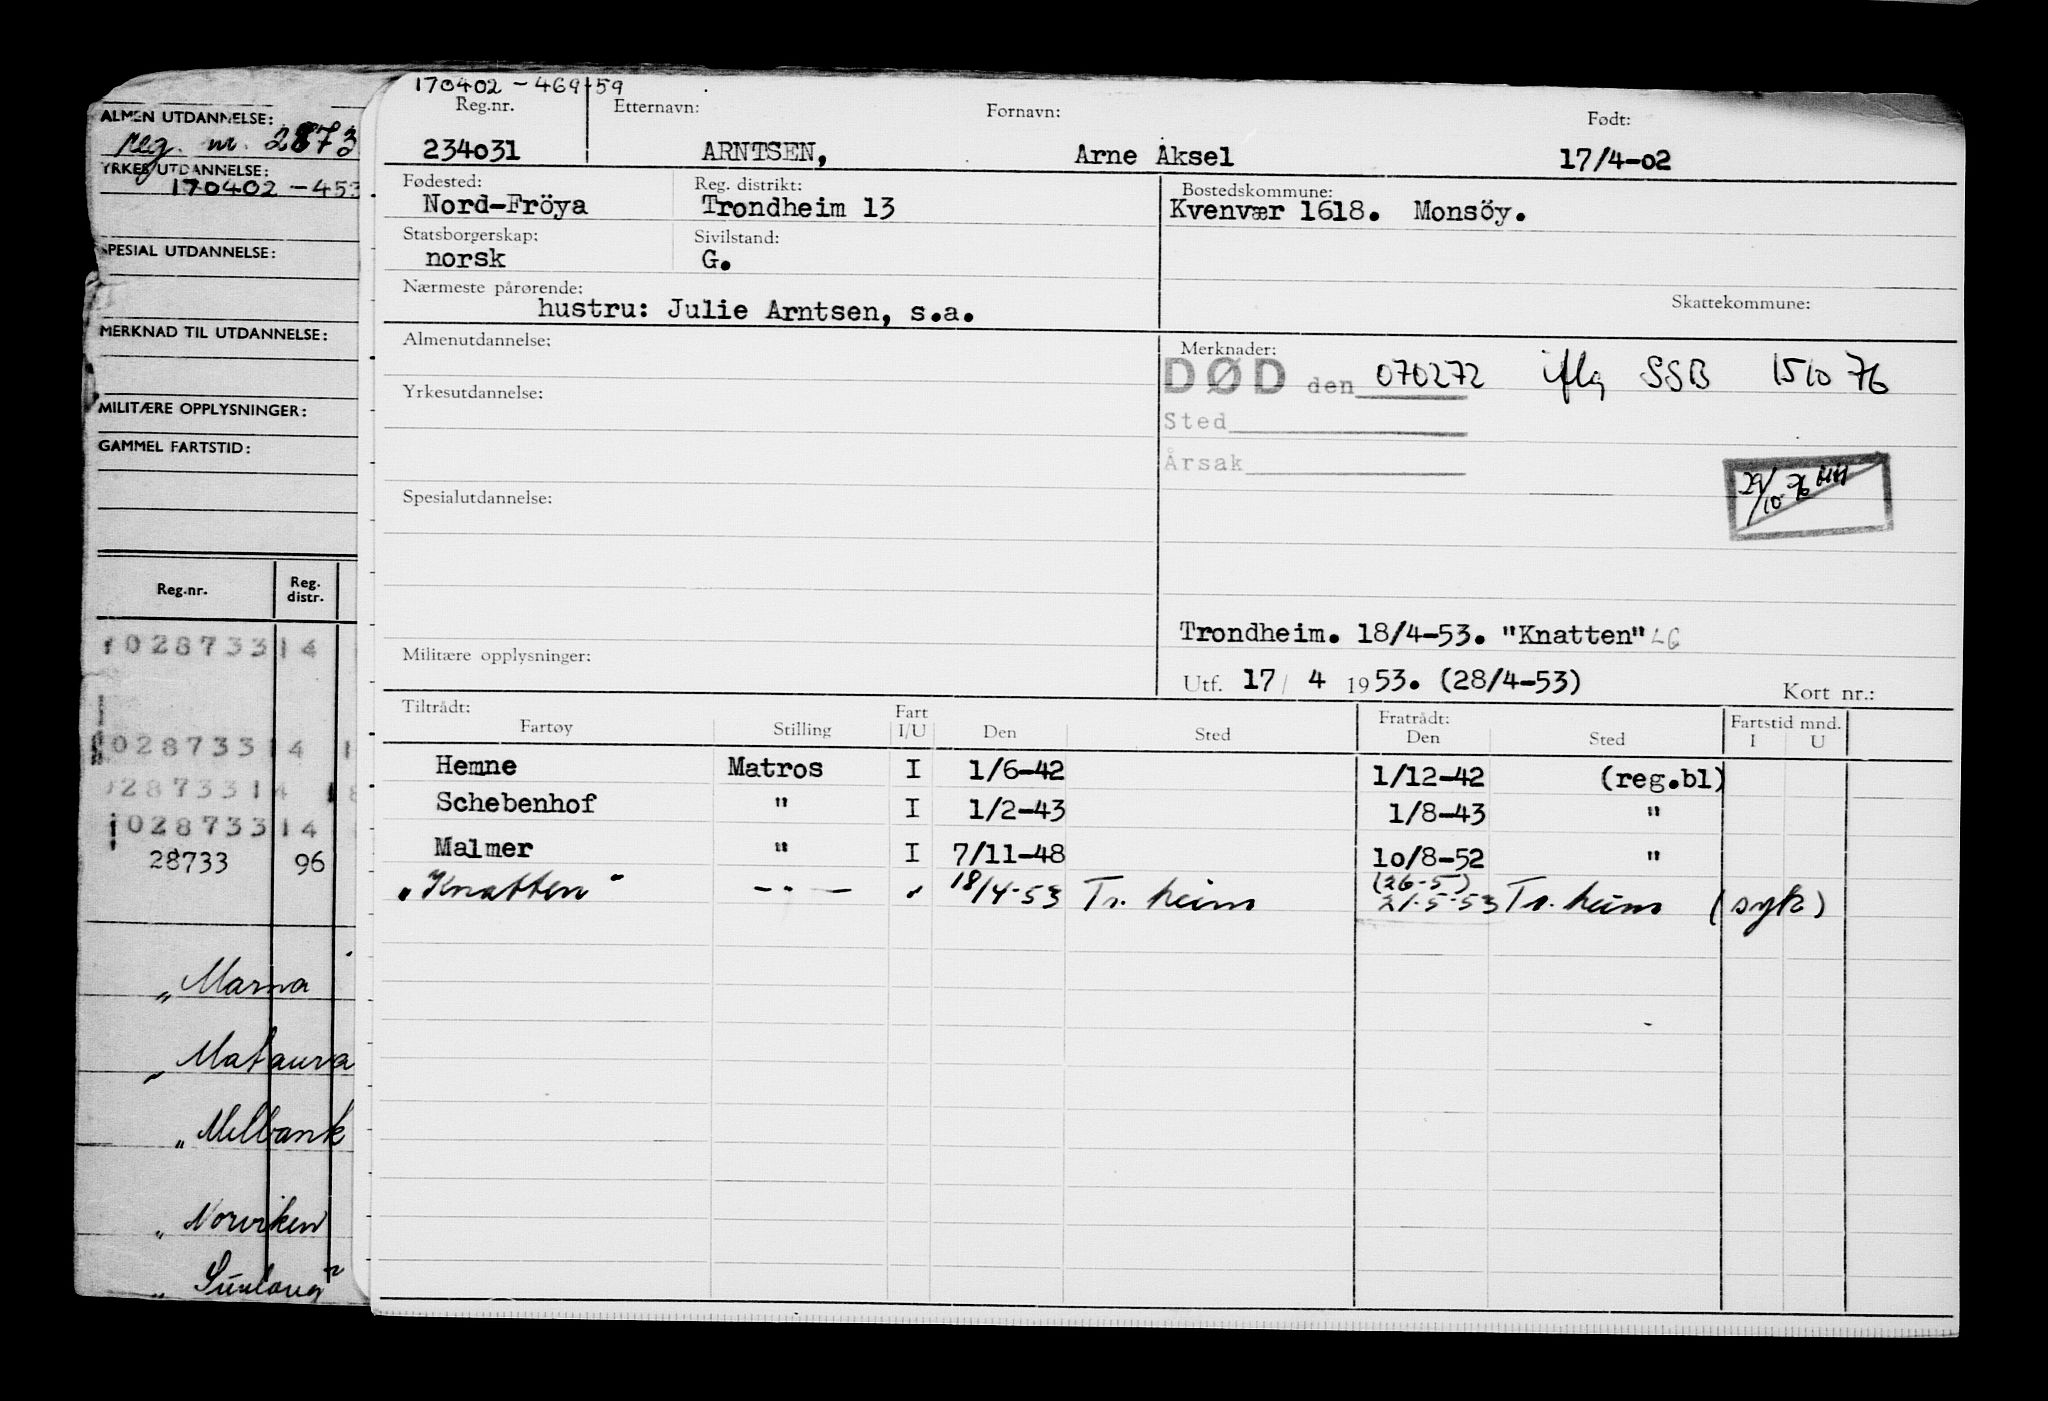 ALMEN UTDANNELSE:
reg. nr. 2873
YRKESUTDANNELSE:
170402 - 453
SPESIAL UTDANNELSE:
MERKNAD TIL UTDANNELSE:
MILITÆRE OPPLYSNINGER:
GAMMEL FARTSTID:
Reg.nr. Reg. distr.
028733 14
028733 14
28733 14
028733 14
28733 96
„Marna
„Mataura
„Melbank
„Norviken
170402 - 469 59
Reg.nr. Etternavn: Fornavn: Født:
234031 ARNTSEN, Arne Aksel 17/4-02
Fødested: Reg. distrikt: Bostedskommune:
Nord-Fröya Trondheim 13 Kvenvær 1618. Monsöy.
Statsborgerskap: Sivilstand:
norsk G.
Nærmeste pårørende: Skattekommune:
hustru: Julie Arntsen, s.a.
Almenutdannelse: Merknader:
DØD den 070272 iflg SSB 151076
Yrkesutdannelse:
Sted
Årsak
29/10-76
Spesialutdannelse:
Trondheim. 18/4-53. "Knatten" LG
Militære opplysninger:
Utf. 17/ 4 1953. (28/4-53) Kort nr.:
Tiltrådt: Fart Fratrådt: Fartstid mnd.
Fartøy Stilling I/U Den Sted Den Sted I U
Hemne Matros I 1/6-42 1/12-42 (reg.bl)
Schebenhof " I 1/2-43 1/8-43 "
Malmer " I 7/11-48 10/8-52 "
(26-5)
"Knatten" -"- " 18/4-53 Tr.heim 21-5-53 Tr.heim (syk)